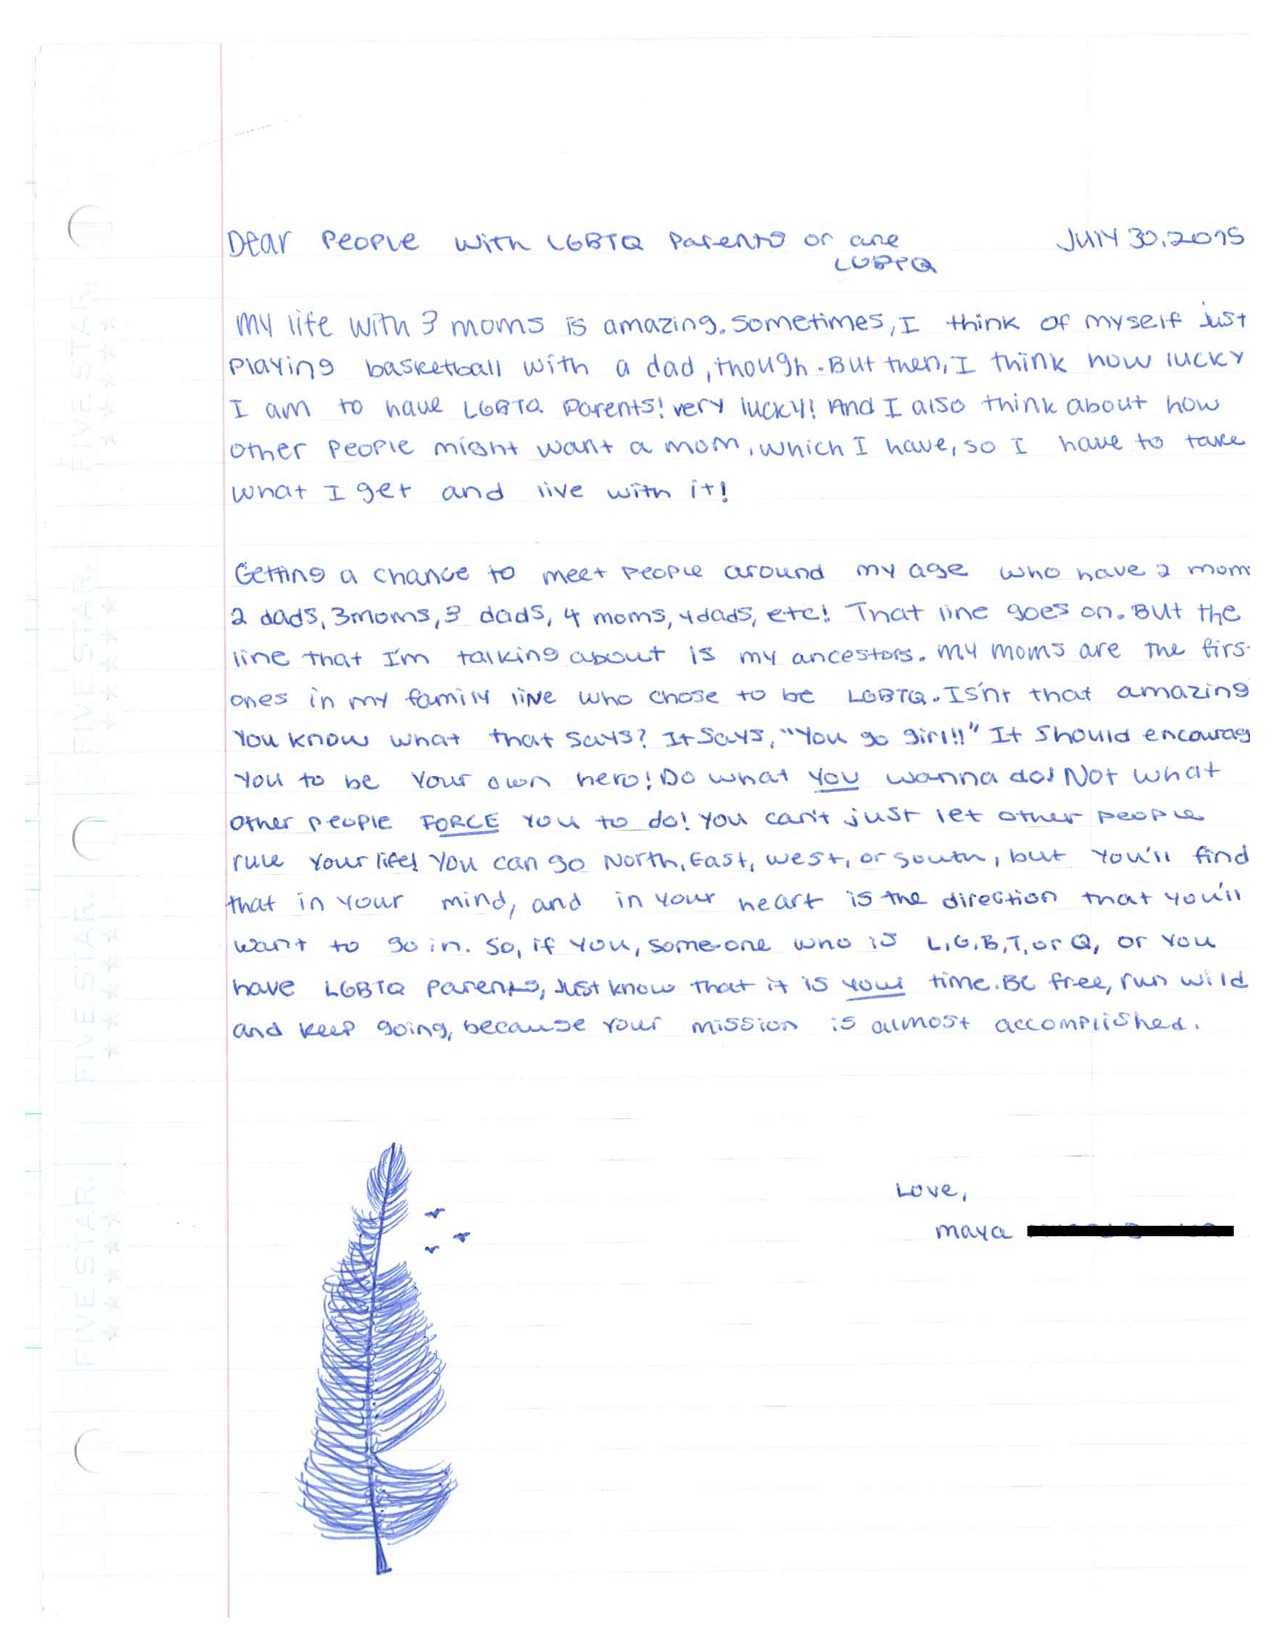 Dear People with LGBTQ Parents or are JULY 30, 2015
LGBTQ
My life with 3 moms is amazing. Sometimes, I think of myself just
Playing basketball with a dad, though. But then, I think how lucky
I am to have LGBTQ Parents! very lucky! And I also think about how
other People might want a mom, which I have, so I have to take
what I get and live with it!
Getting a chance to meet People around my age who have 2 mom
2 dads, 3 moms, 3 dads, 4 moms, 4 dads, etc! That line goes on. But the
line that I'm talking about is my ancestors. My moms are the firs
ones in my family line who chose to be LGBTQ. Isn't that amazing
You know what that says? It Says, "You go girl!!" It Should encourag
You to be Your own hero! Do what you wanna do! Not what
other people FORCE You to do! You can't just let other people
rule Your life! You can go North, East, West, or South, but You'll find
that in Your mind, and in Your heart is the direction that you'll
want to go in. So, if You, someone who is L,G,B,T, or Q, or You
have LGBTQ Parents, Just know that it is your time. Be free, run wild
and keep going, because Your mission is almost accomplished.
Love,
Maya
FIVE STAR.
FIVE STAR.
FIVE STAR.
FIVE STAR.